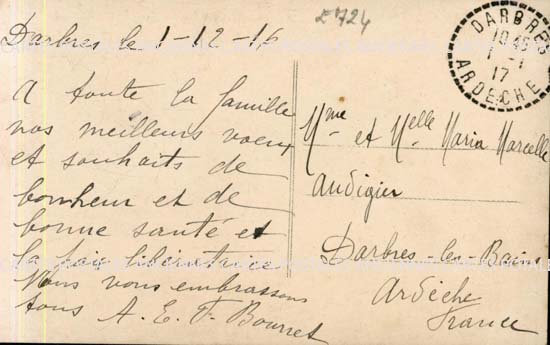 E724
Darbres le 1-12-16
A toute la famille
nos meilleurs voeux
et souhaits de
bonheur et de
bonne santé et
la paix libératrice
Nous vous embrassons
tous A. E. F. Bourret
DARBRES
10 45
1 -1
17
ARDÈCHE
Mme et Melle Maria Marcelle
Audigier
Darbres-les-Bains
Ardèche
France